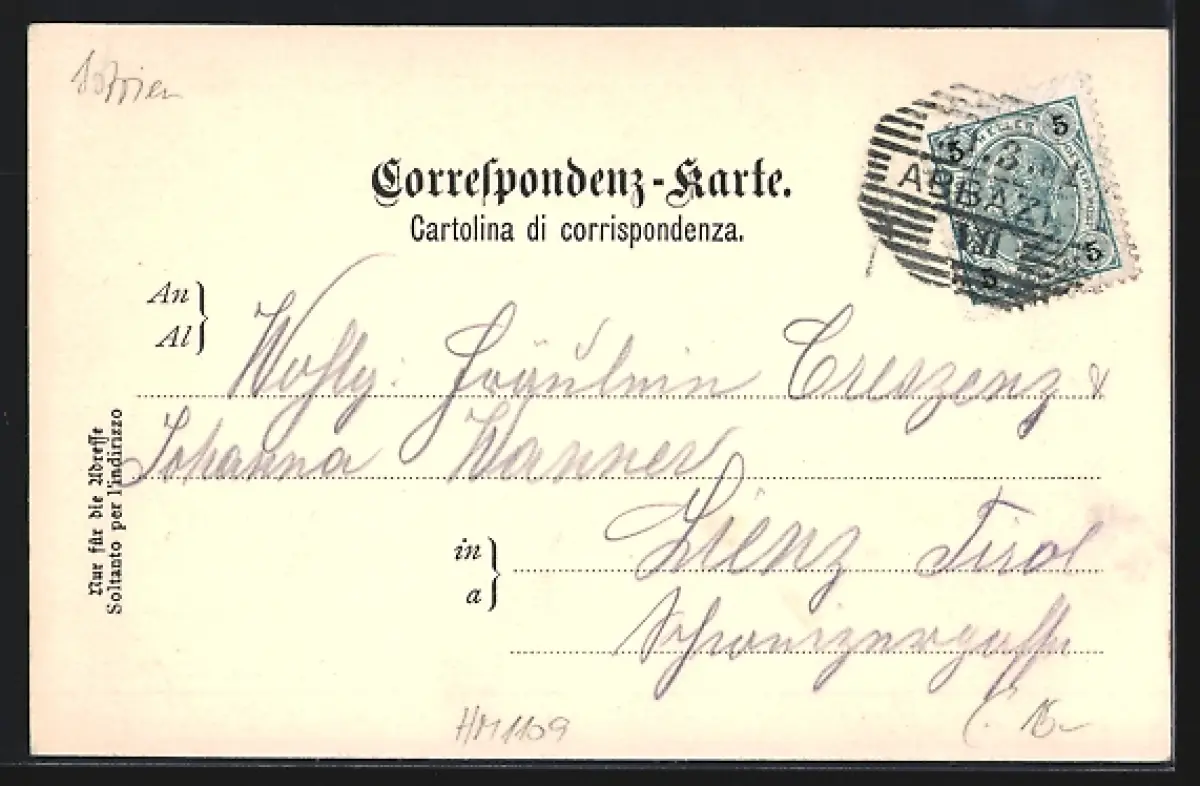 Istrien
Correſpondenz-Karte.
Cartolina di corrispondenza.
HELLER
5 5 5 5
ABBAZIA
An
Al
Wohlg: Fräulein Creszenz &
Johanna Wanner
in
a
Lienz Tirol
Schweizergasse
Nur für die Adreſſe
Soltanto per l'indirizzo
HM1109